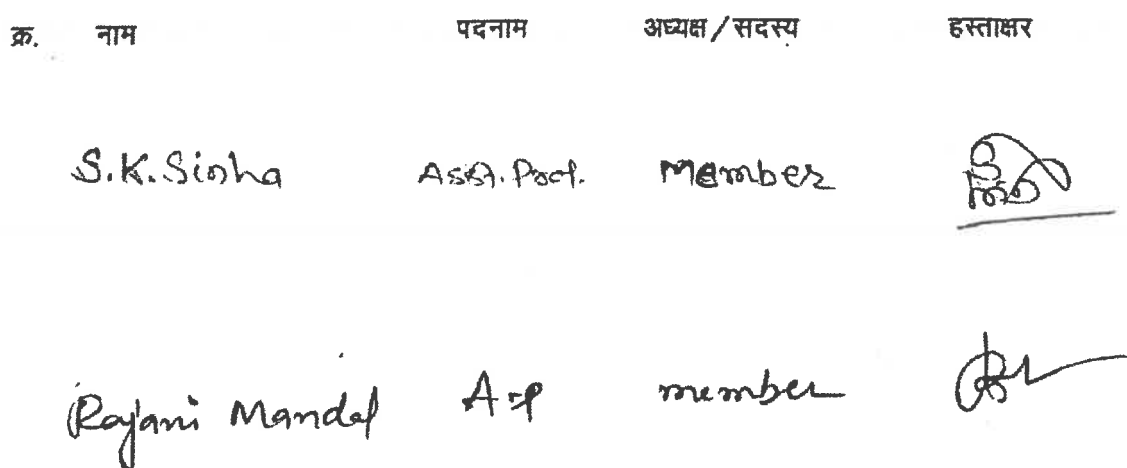 क्र. नाम पदनाम अध्यक्ष/सदस्य हस्ताक्षर
S.K.Sinha Asst. Prof. Member
Rajani Mandal A.P member